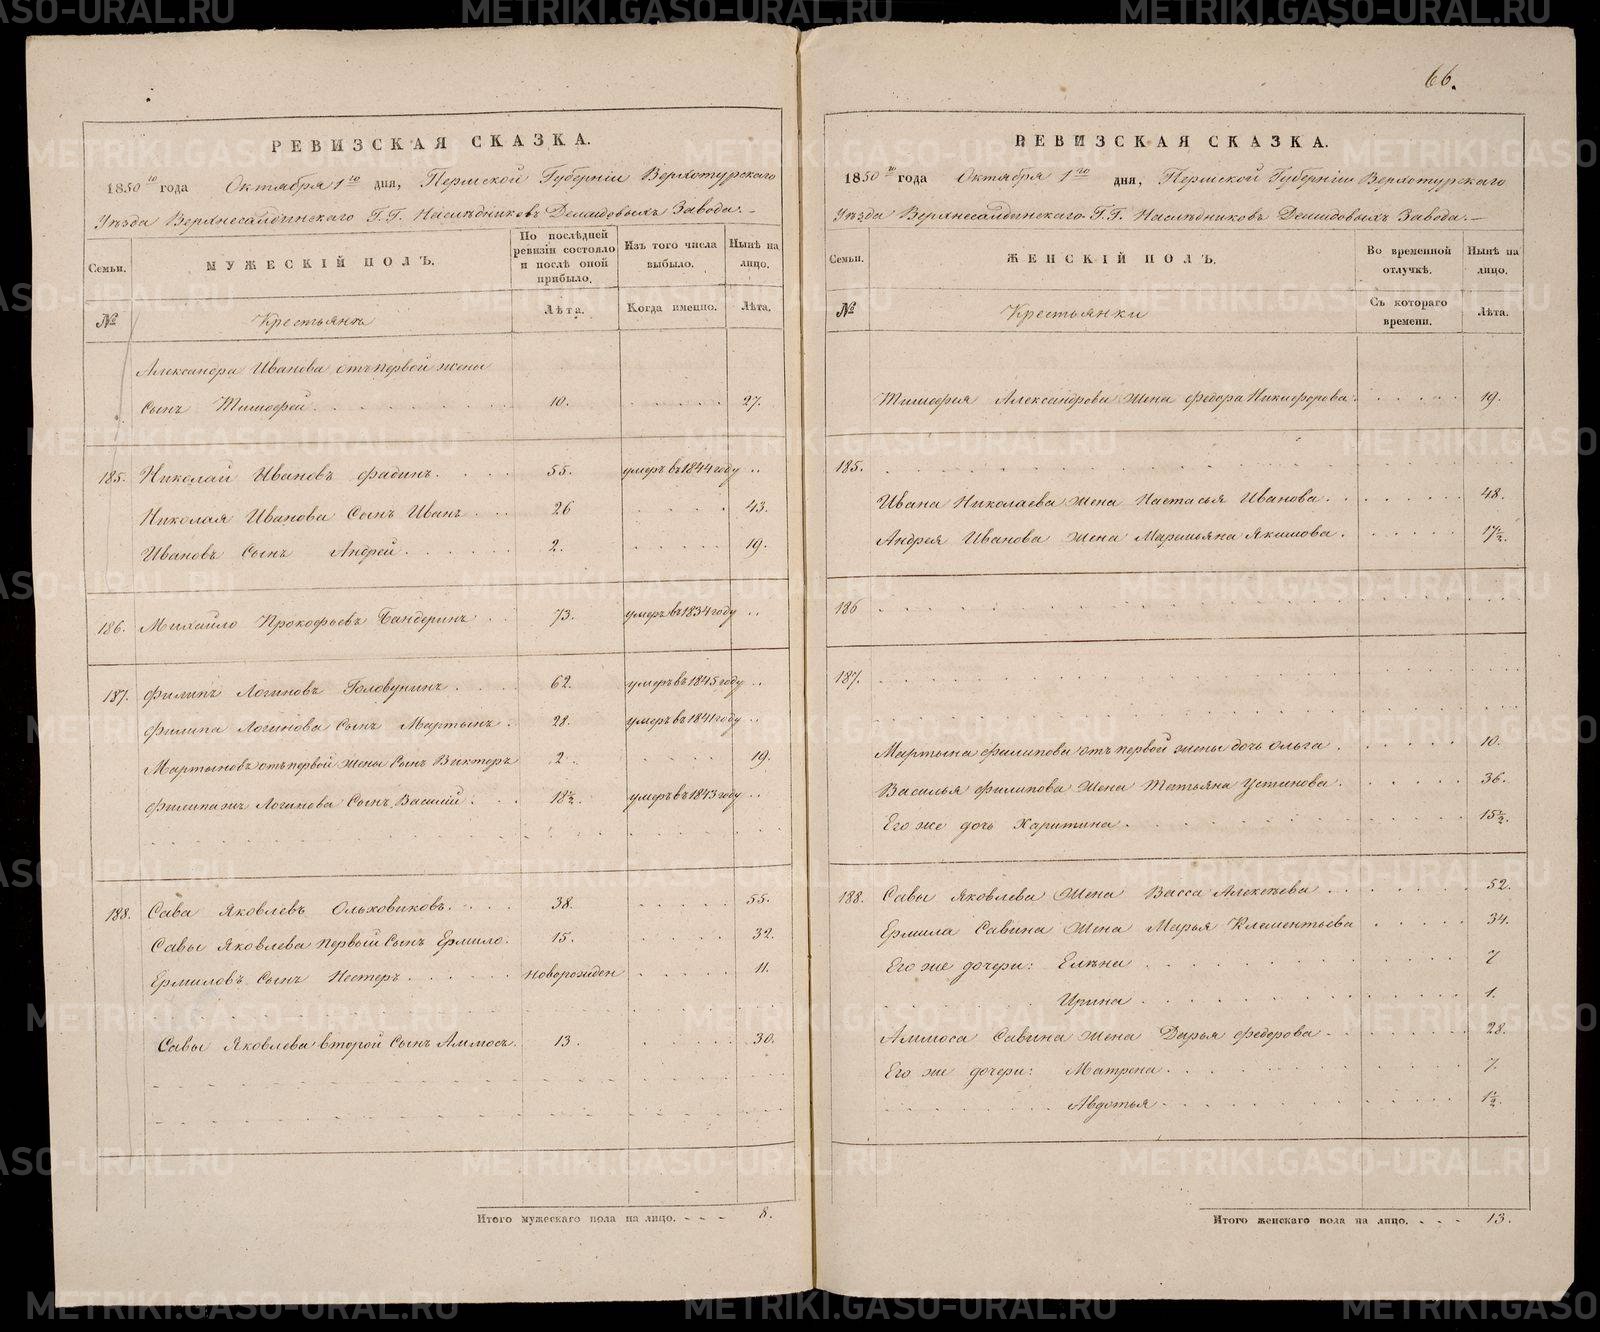 66.
РЕВИЗСКАЯ СКАЗКА.
1850го года Октября 1го дня, Пермской Губерніи Верхотурскаго
Уѣзда Верхнесалдинскаго Г.Г. Наслѣдниковъ Демидовыхъ Завода.
Семьи. МУЖЕСКІЙ ПОЛЪ. По послѣдней ревизіи состояло и послѣ оной прибыло. Изъ того числа выбыло. Нынѣ на лицо.
№ Крестьянъ Лѣта. Когда именно. Лѣта.
Александра Иванова отъ первой жены
сынъ Тимофей 10. 27.
185. Николай Ивановъ Фадинъ. 55. умеръ въ 1844 году
Николая Иванова Сынъ Иванъ 26 43.
Ивановъ Сынъ Андрей 2. 19.
186. Михайло Прокофьевъ Бандеринъ 73. умеръ въ 1834 году
187. Филипъ Логиновъ Головунинъ. 62. умеръ въ 1845 году
Филипа Логинова Сынъ Мартынъ. 28. умеръ въ 1841 году
Мартыновъ отъ первой жены Сынъ Виктеръ 2. 19.
Филипа жъ Логинова Сынъ Василій. 18½. умеръ въ 1843 году
188. Сава Яковлевъ Ольховиковъ. 38. 55.
Савы Яковлева первый Сынъ Ермило. 15. 32.
Ермиловъ Сынъ Нестеръ новорожден 11.
Савы Яковлева второй Сынъ Аммосъ. 13. 30.
Итого мужескаго пола на лицо. 8.
РЕВИЗСКАЯ СКАЗКА.
1850го года Октября 1го дня, Пермской Губерніи Верхотурскаго
Уѣзда Верхнесалдинскаго Г.Г. Наслѣдниковъ Демидовыхъ Завода.
Семьи. ЖЕНСКІЙ ПОЛЪ. Во временной отлучкѣ. Нынѣ на лицо.
№ Крестьянки Съ котораго времени. Лѣта.
Тимофея Александрова жена Федора Никифорова 19.
185.
Ивана Николаева жена Настасья Иванова. 48.
Андрея Иванова жена Маремьяна Якимова. 17½.
186
187.
Мартына Филипова отъ первой жены дочь Ольга. 10.
Василья Филипова жена Татьяна Устинова. 36.
Его же дочь Харитина. 15½.
188. Савы Яковлева Жена Васса Алексѣева 52.
Ермила Савина Жена Марья Клементьева 34.
Его же дочери: Елѣна 7
Ирина 1.
Аммоса Савина жена Дарья Федорова 28.
Его же дочери: Матрена. 7.
Авдотья 1½.
Итого женскаго пола на лицо. 13.
METRIKI.GASO-URAL.RU